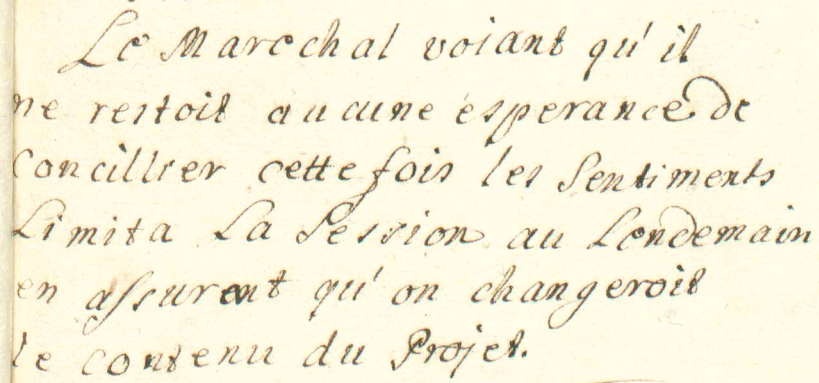 Le Marechal voiant qu'il
ne restoit aucune esperance de
Concillier cette fois les Sentiments
Limita La Session au Lendemain
en assurant qu'on changeroit
le contenu du Projet.